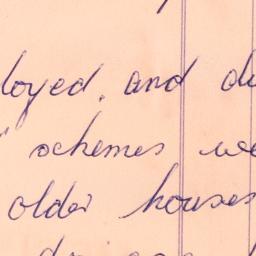 loyed, and du
" schemes we
older houses